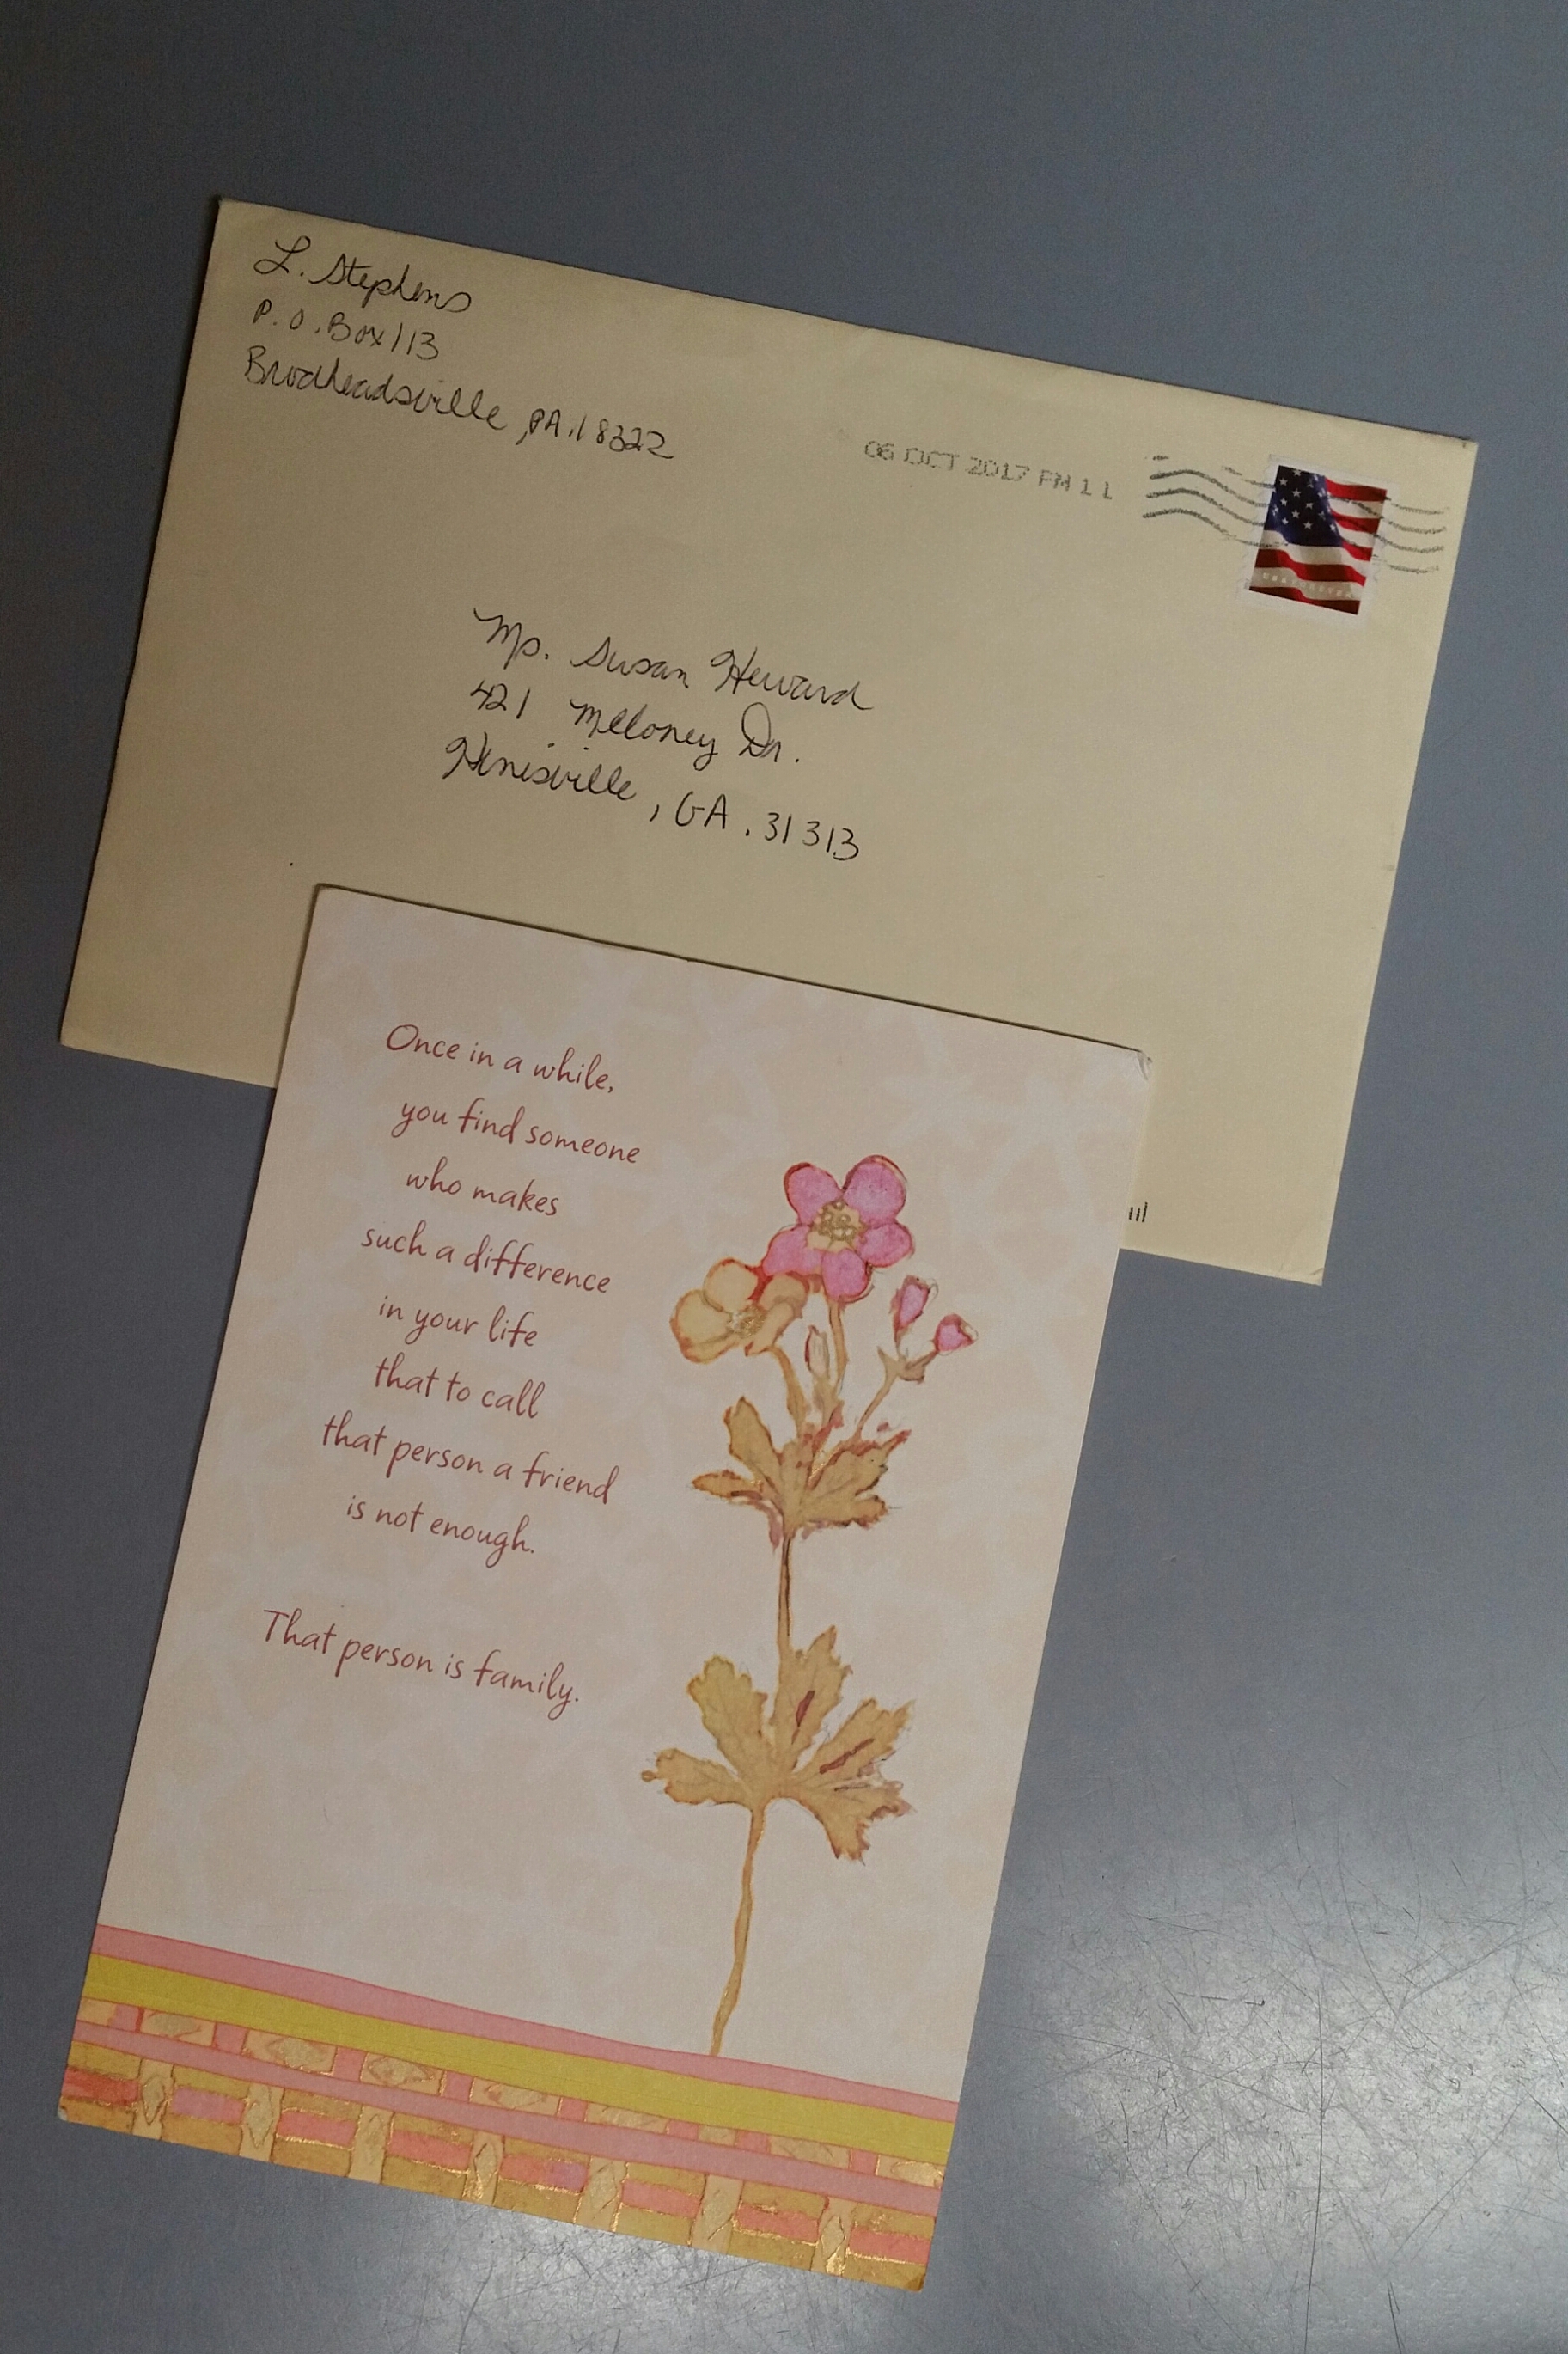 L. Stephens
P.O. Box 113
Brodheadsville, PA. 18322
06 OCT 2017 PM 1 L
Ms. Susan Heward
421 Meloney Dr.
Hinisville, GA. 31313
Once in a while,
you find someone
who makes
such a difference
in your life
that to call
that person a friend
is not enough.
That person is family.